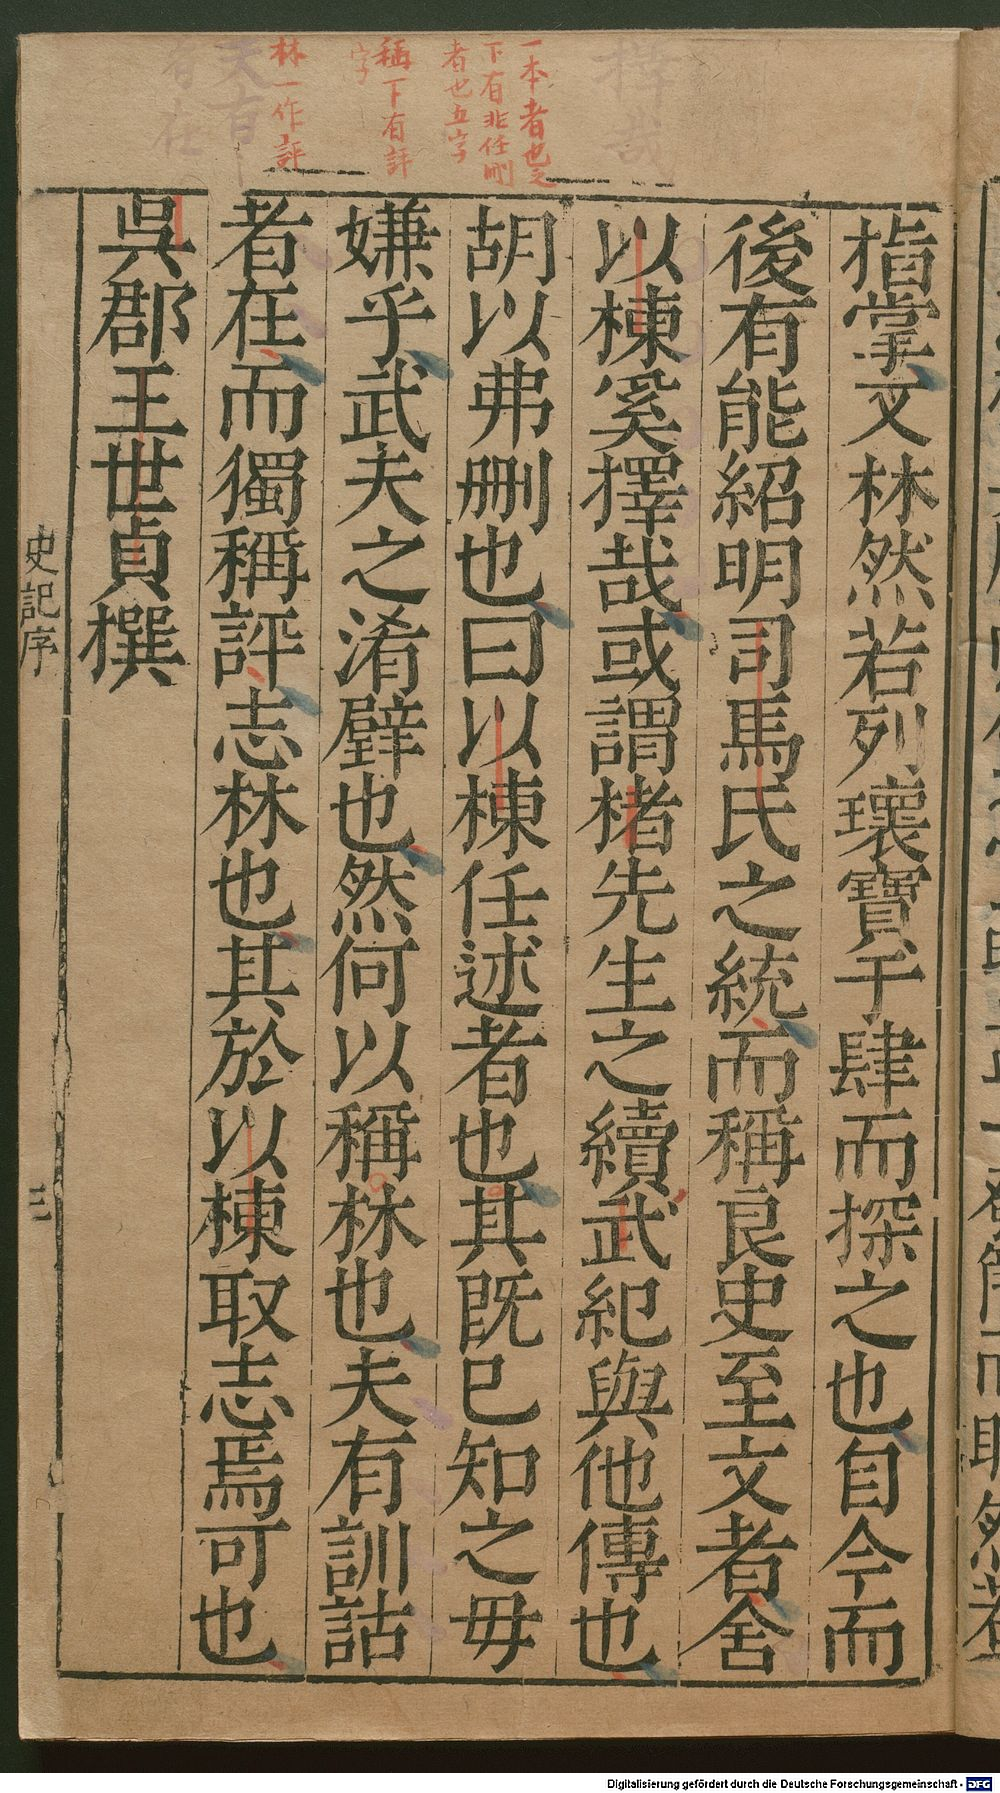 一本者也之
下有非任刪
者也五字
稱下有評
字
林一作評
指掌文林然若列瓌寶于肆而探之也自今而
後有能紹明司馬氏之統而稱良史至文者舍
以棟奚擇哉或謂楮先生之續武紀與他傳也
胡以弗刪也曰以棟任述者也其既已知之毋
嫌乎武夫之淆璧也然何以稱林也夫有訓詁
者在而獨稱評志林也其於以棟取志焉可也
吳郡王世貞撰
史記序
三
Digitalisierung gefördert durch die Deutsche Forschungsgemeinschaft - DFG